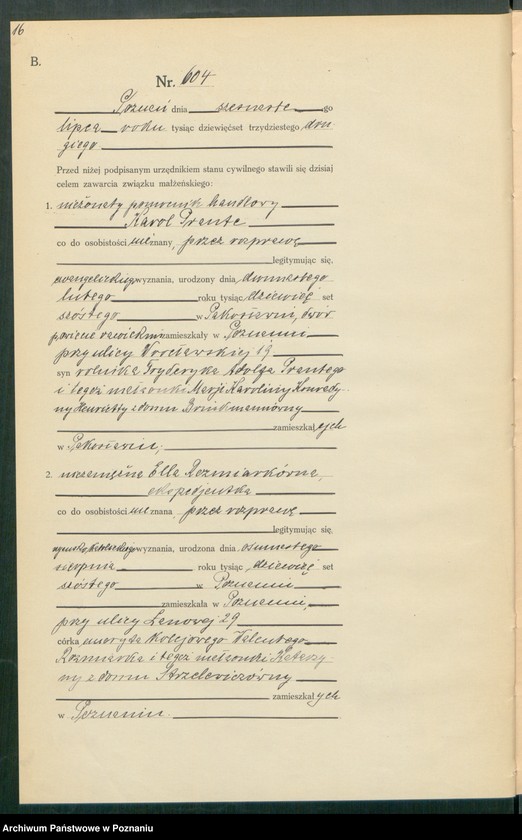 16
B.
Nr. 604
Poznań dnia szesnastego
lipca roku tysiąc dziewięćset trzydziestego dru-
giego
Przed niżej podpisanym urzędnikiem stanu cywilnego stawili się dzisiaj
celem zawarcia związku małżeńskiego:
1. nieżonaty pomocnik handlowy
Karol Prante
co do osobistości znany, przez rozprawę
legitymując się,
ewangelickiego wyznania, urodzony dnia dwunastego
lutego roku tysiąc dziewięć set
szóstego w Pakosławiu, dwór
powiecie rawickim zamieszkały w Poznaniu
przy ulicy Wrocławskiej 19
syn rolnika Fryderyka Adolfa Prantego
i tegoż małżonki Marji Karoliny
ny Henrietty z domu
zamieszkałych
w Pakosławiu,
2. niezamężna Ella Rozmiarkówna,
ekspedjentka
co do osobistości znana przez rozprawę
legitymując się,
wyznania, urodzona dnia ósmnastego
sierpnia roku tysiąc dziewięć set
szóstego w Poznaniu
zamieszkała w Poznaniu,
przy ulicy Łanowej 29
córka emeryta kolejowego Walentego
Rozmiarka i tegoż małżonki Katarzy-
ny z domu Strzelewiczówny
zamieszkałych
w Poznaniu.
Archiwum Państwowe w Poznaniu